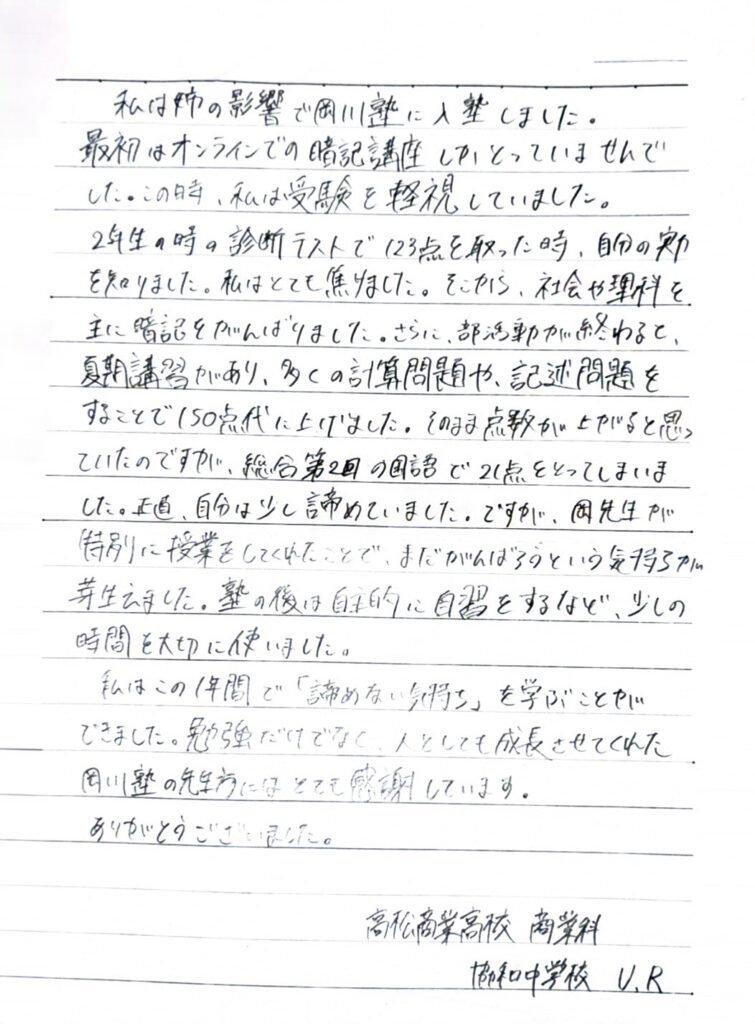 私は姉の影響で岡川塾に入塾しました。
最初はオンラインでの暗記講座しかとっていませんで
した。この時、私は受験を軽視していました。
2年生の時の診断テストで123点を取った時、自分の実力
を知りました。私はとても焦りました。そこから、社会や理科を
主に暗記をがんばりました。さらに、部活動が終わると、
夏期講習があり、多くの計算問題や、記述問題を
することで150点代に上げました。そのまま点数が上がると思っ
ていたのですが、総合第2回の国語で21点をとってしまいま
した。正直、自分は少し諦めていました。ですが、岡先生が
特別に授業をしてくれたことで、まだがんばろうという気持ちが
芽生えました。塾の後は自主的に自習をするなど、少しの
時間を大切に使いました。
私はこの1年間で「諦めない気持ち」を学ぶことが
できました。勉強だけでなく、人としても成長させてくれた
岡川塾の先生方にはとても感謝しています。
ありがとうございました。
高松商業高校 商業科
協和中学校 U.R